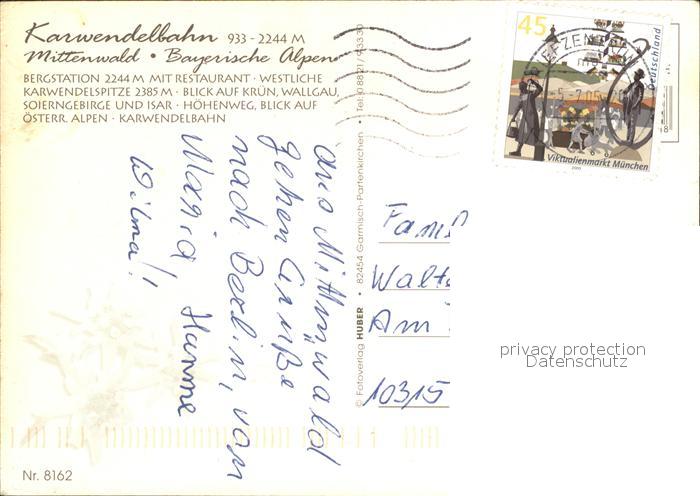 Karwendelbahn 933 - 2244 M
Mittenwald • Bayerische Alpen
BERGSTATION 2244 M MIT RESTAURANT · WESTLICHE
KARWENDELSPITZE 2385 M · BLICK AUF KRÜN, WALLGAU,
SOIERNGEBIRGE UND ISAR · HÖHENWEG, BLICK AUF
ÖSTERR. ALPEN · KARWENDELBAHN
aus Mittenwald
gehen Grüße
nach Berlin, von
Maria Hanne
Wilma!!
© Fotoverlag HUBER • 82454 Garmisch-Partenkirchen • Tel. 0 88 21 / 9 33 30
45
Deutschland
Viktualienmarkt München
2003
Fami
Walt
Am
10315
privacy protection
Datenschutz
Nr. 8162